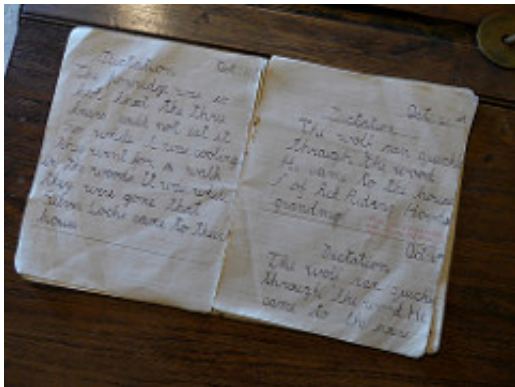 Dictation Oct
The porridge was so
hot that the three
bears could not eat it
so while it was cooling
they went for a walk
in the woods it was while
they were gone that
Locks came to their
house
Oct
Dictation
The wolf ran quickly
through the wood
He came to the house
of Red Riding Hoods
grandma
Oct
Dictation
The wolf ran quickly
through the wood He
came to the house